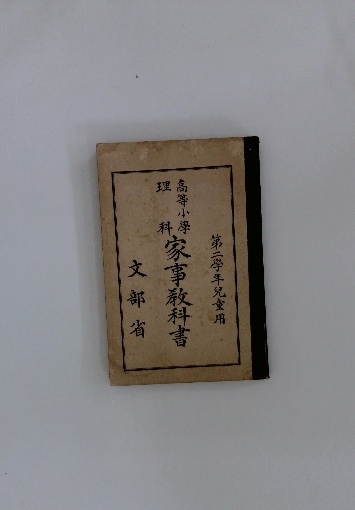 第二學年兒童用
高等小學
理科
家事教科書
文部省